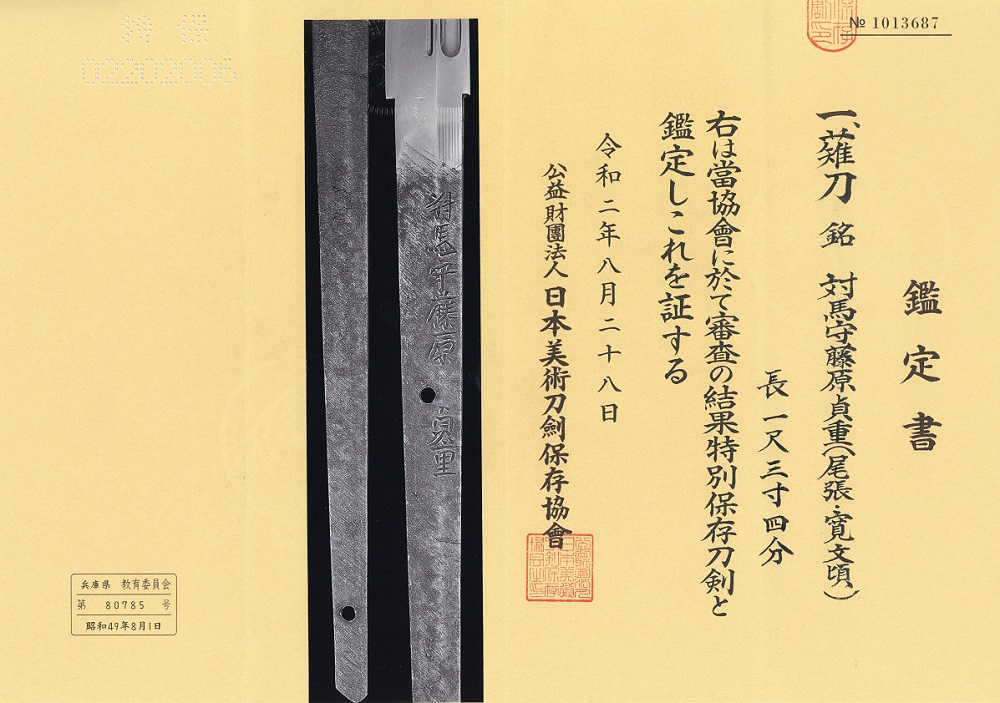 № 1013687
鑑定書
一、薙刀 銘 対馬守藤原貞重(尾張・寛文頃)
長一尺三寸四分
右は當協會に於て審査の結果特別保存刀剣と
鑑定しこれを証する
令和二年八月二十八日
公益財團法人日本美術刀劍保存協會
対馬守藤原貞重
02202006
兵庫県 教育委員会
第 80785 号
昭和49年8月1日